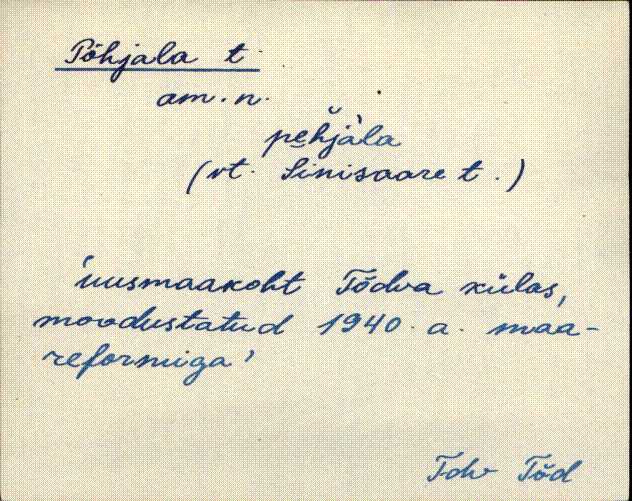 Põhjala t.
am. n.
pe̮hjàla
(vt. Sinisaare t.)
'uusmaakoht Tõdva külas,
moodustatud 1940. a. maa-
reformiga'
Tdv Tõd